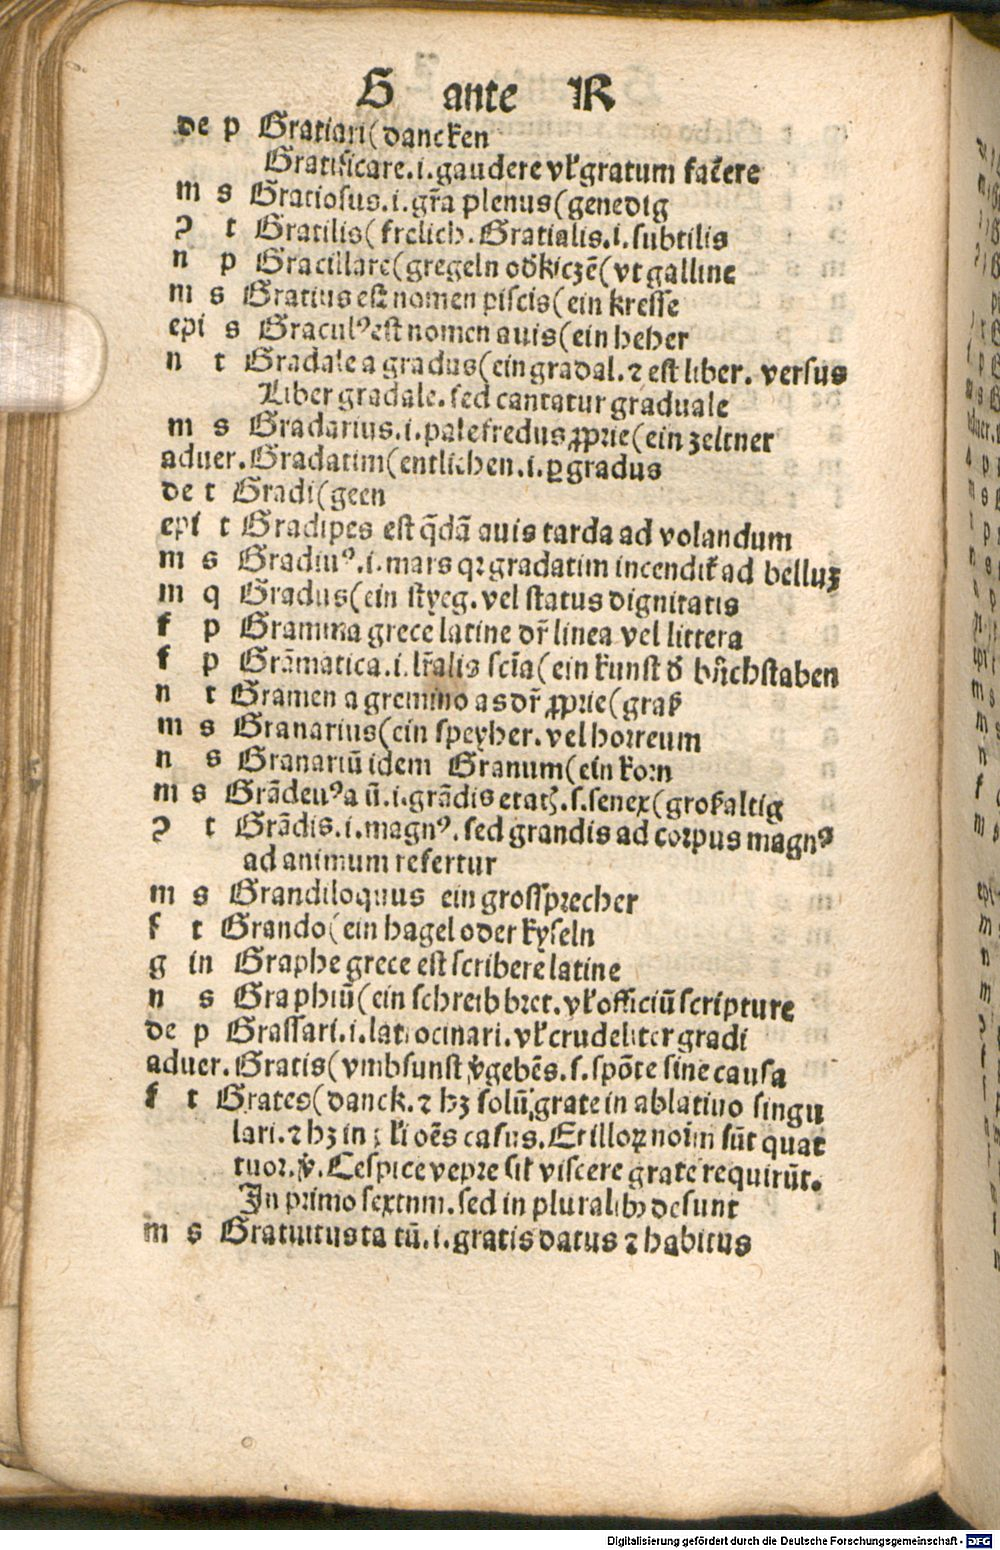 G ante R
de p Gratiari(dancken
Gratificare.i.gaudere vl̛ gratum facere
m s Gratiosus.i.gr̄a plenus(genedig
ꝯ t Gratilis(frelich. Gratialis.i.subtilis
n p Gracillare(gregeln od̛ kiczē(vt galline
m s Gratius est nomen piscis(ein kresse
epi s Gracul⁹ est nomen auis(ein heher
n t Gradale a gradus(ein gradal. ⁊ est liber. versus
Liber gradale. sed cantatur graduale
m s Gradarius.i.palefredus ꝓprie(ein zeltner
aduer. Gradatim(entlichen.i.ꝑ gradus
de t Gradi(geen
epi t Gradipes est q̄dā auis tarda ad volandum
m s Gradiu⁹.i.mars qꝛ gradatim incendit̛ ad belluꝫ
m q Gradus(ein styeg. vel status dignitatis
f p Gramma grece latine dr̄ linea vel littera
f p Grāmatica.i.lr̄alis scīa(ein kunst d̛ bůchstaben
n t Gramen a gremino as dr̄ ꝓprie(graß
m s Granarius(ein speyher. vel horreum
n s Granariū idem Granum(ein korn
m s Grādeu⁹ a ū.i.grādis etatꝭ.s.senex(großaltig
ꝯ t Grādis.i.magn⁹. sed grandis ad corpus magn⁹
ad animum refertur
m s Grandiloquus ein grossprecher
f t Grando(ein hagel oder kyseln
g in Graphe grece est scribere latine
n s Graphiū(ein schreibbret. vl̛ officiū scripture
de p Grassari.i.latrocinari. vl̛ crudeliter gradi
aduer. Gratis(vmbsunst v̛gebēs.s.spōte sine causa
f t Grates(danck. ⁊ hꝫ solū grate in ablatiuo singu
lari. ⁊ hꝫ in pl̛i oēs casus. Et illoꝝ noīm sūt quat
tuor. v̛. Cespice vepre sit̛ viscere grate requirūt.
In primo sextum. sed in pluralibꝫ desunt
m s Gratuitus ta tū.i.gratis datus ⁊ habitus
Digitalisierung gefördert durch die Deutsche Forschungsgemeinschaft - DFG